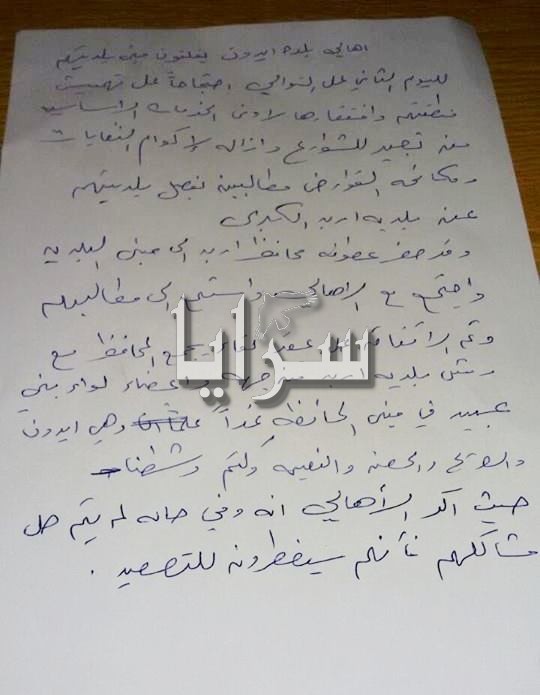 اهالي بلدة ايدون يغلقون مبنى بلديتهم
لليوم الثاني على التوالي احتجاجاً على تهميش
منطقتهم وافتقارها لادنى الخدمات الاساسية
من تعبيد للشوارع وازالة لاكوام النفايات
ومكافحة القوارض مطالبين بفصل بلديتهم
عن بلدية اربد الكبرى
وقد حضر عطوفة محافظ اربد الى مبنى البلدية
واجتمع مع الاهالي واستمع الى مطالبهم
وتم الاتفاق على عقد لقاء يجمع المحافظ مع
رئيس بلدية اربد من جهة واعضاء لواء بني
عبيد في مبنى المحافظة غداً وهي ايدون
والصريح والحصن والنعيمة وكتم وشطنا
حيث اكد الأهالي انه وفي حالة لم يتم حل
مشاكلهم فأنهم سيضطرون للتصعيد .
سرايا